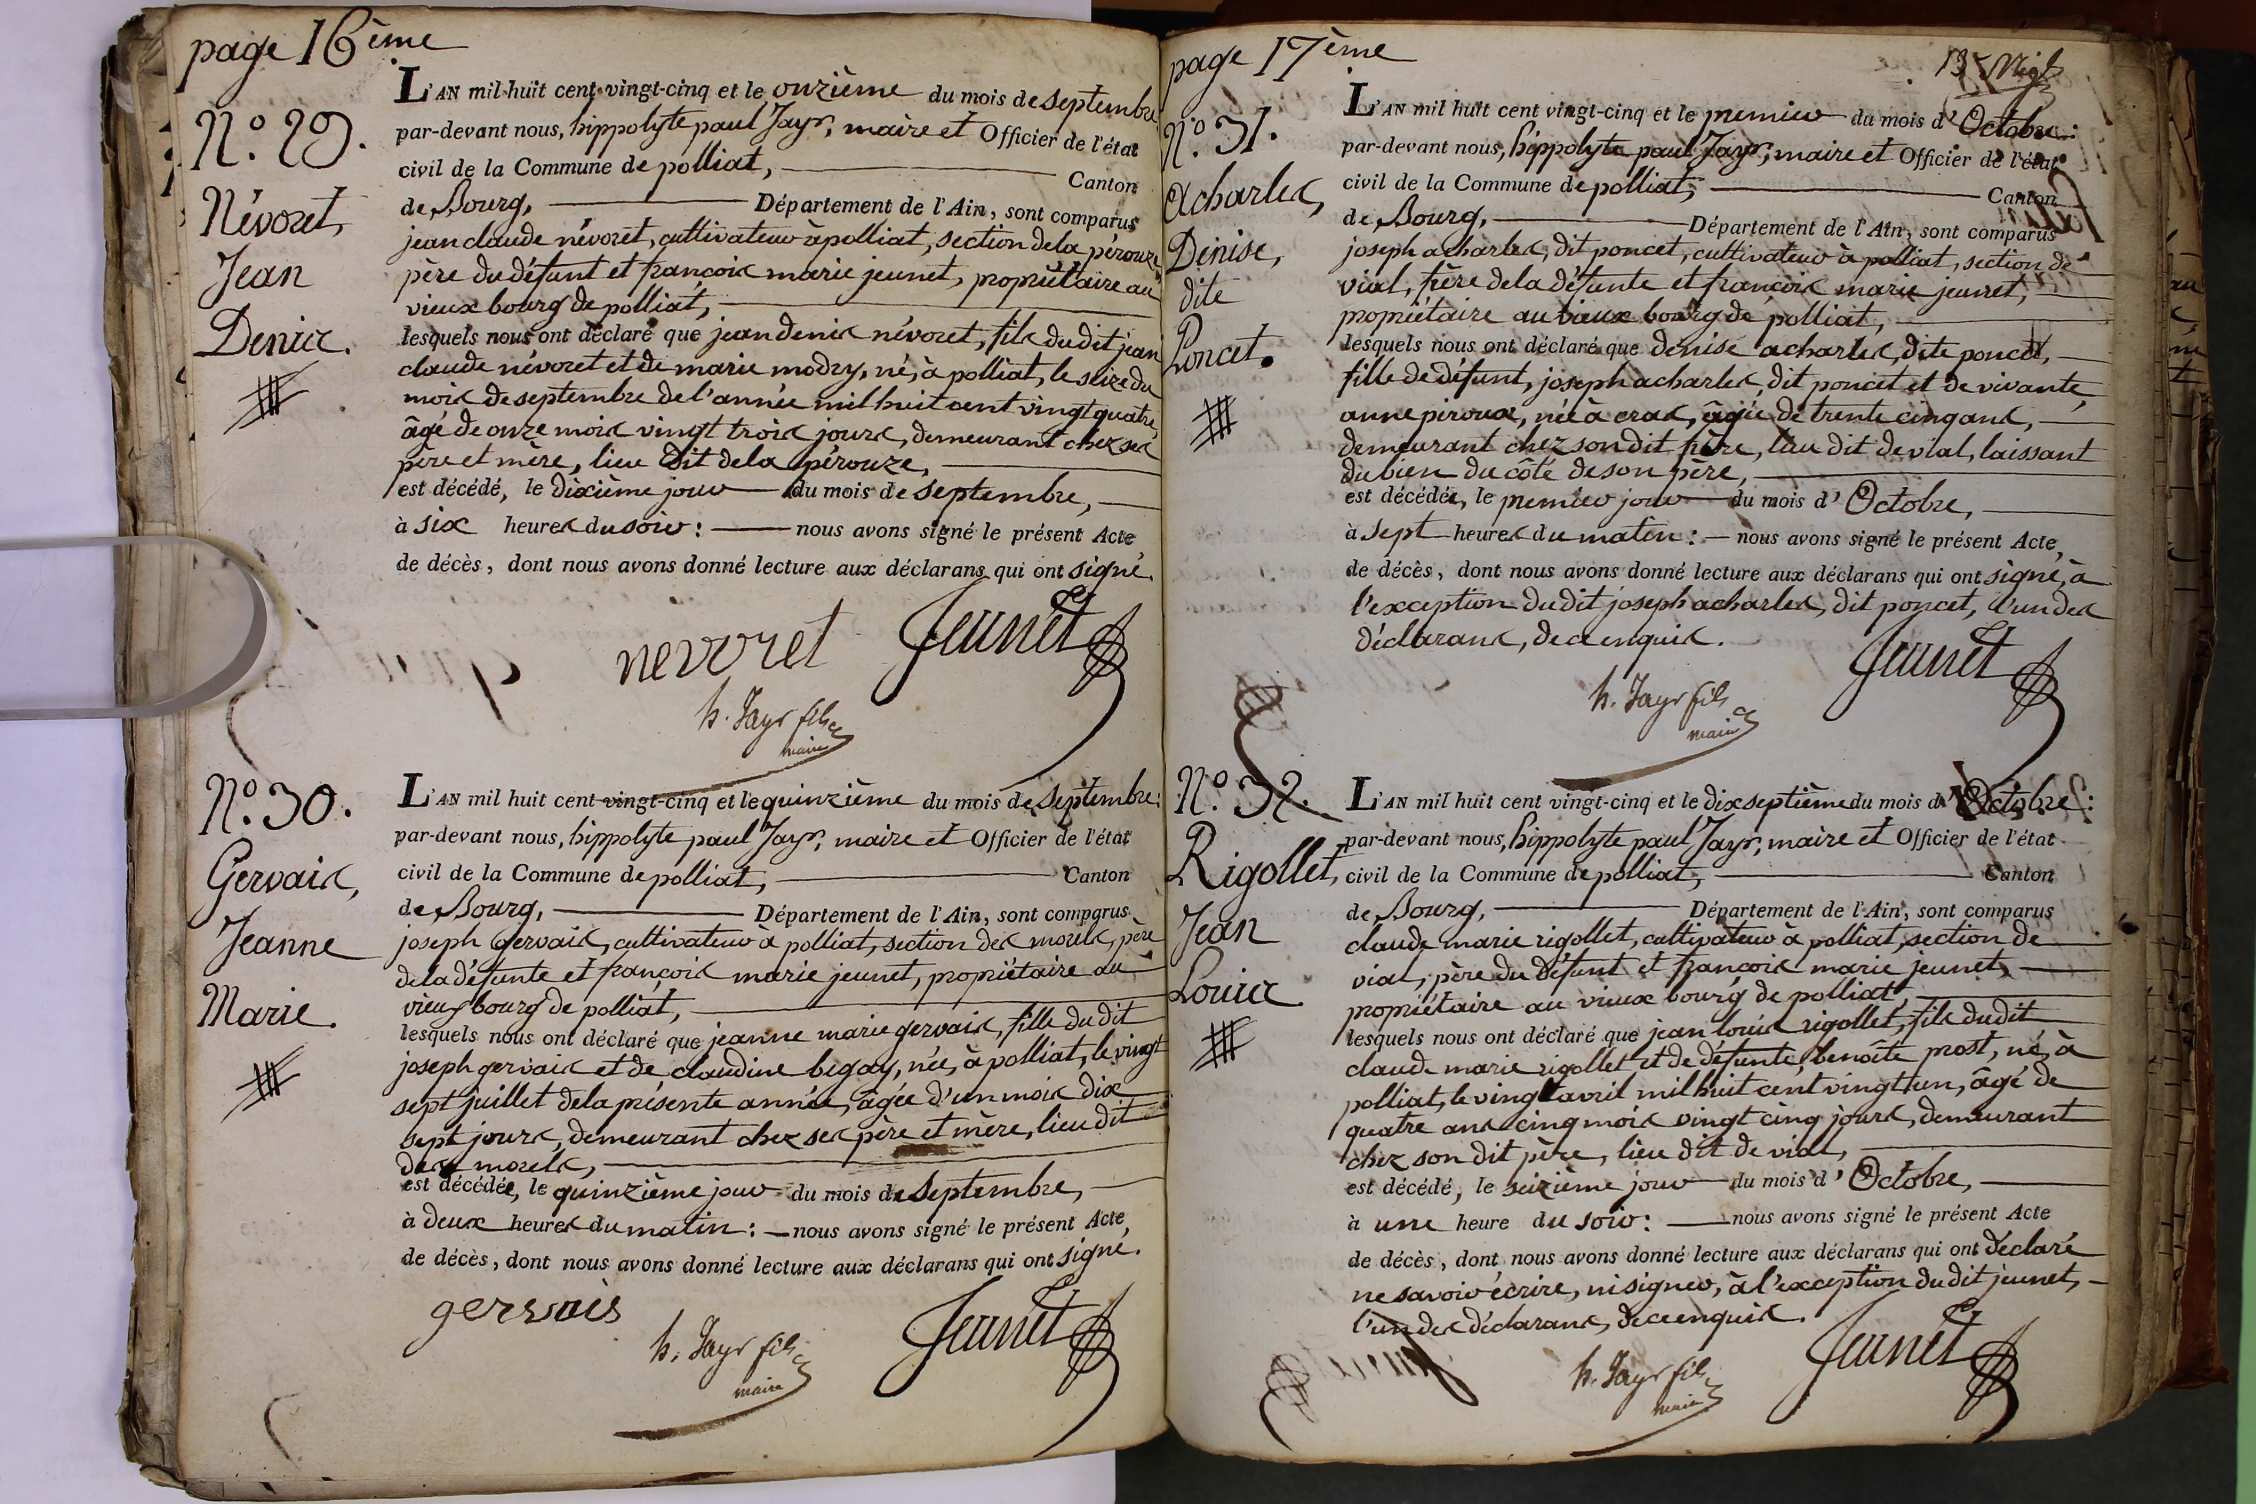 page 16ème
N.º 29.
Névoret,
Jean
Denis.
L'AN mil huit cent vingt-cinq et le onzième du mois de septembre
par-devant nous, hippolyte paul Jayr, maire et Officier de l'état
civil de la Commune de polliat, Canton
de Bourg, Département de l'Ain, sont comparus
jean claude névoret, cultivateur à polliat, section de la pérouze
père du défunt et françois marie jeunet, propriétaire au
vieux bourg de polliat,
lesquels nous ont déclaré que jean denis névoret, fils du dit jean
claude névoret et de marie modzy, né, à polliat, le seize du
mois de septembre de l'année mil huit cent vingt quatre,
âgé de onze mois vingt trois jours, demeurant chez ses
père et mère, lieu dit de la pérouze,
est décédé, le dixième jour du mois de septembre,
à six heures du soir : nous avons signé le présent Acte
de décès, dont nous avons donné lecture aux déclarans qui ont signé.
nevoret Jeunet
h. Jayr fils
maire
N.º 30.
Gervais,
Jeanne
Marie.
L'AN mil huit cent vingt-cinq et le quinzième du mois de septembre :
par-devant nous, hippolyte paul Jayr, maire et Officier de l'état
civil de la Commune de polliat, Canton
de Bourg, Département de l'Ain, sont comparus
joseph gervais, cultivateur à polliat, section des morels, père
de la défunte et françois marie jeunet, propriétaire au
vieux bourg de polliat,
lesquels nous ont déclaré que jeanne marie gervais, fille du dit
joseph gervais et de claudine bigay, née, à polliat, le vingt
sept juillet de la présente année, âgée d'un mois dix
sept jours, demeurant chez ses père et mère, lieu dit
des morels,
est décédée, le quinzième jour du mois de septembre,
à deux heures du matin : nous avons signé le présent Acte
de décès, dont nous avons donné lecture aux déclarans qui ont signé.
gervais
h. Jayr fils
maire
Jeunet
page 17ème
N.º 31.
Acharles,
Denise,
dite
Poncet.
L'AN mil huit cent vingt-cinq et le premier du mois d'Octobre :
par-devant nous, hippolyte paul Jayr, maire et Officier de l'état
civil de la Commune de polliat, Canton
de Bourg, Département de l'Ain, sont comparus
joseph acharles, dit poncet, cultivateur à polliat, section de
vial, frère de la défunte et françois marie jeunet,
propriétaire au vieux bourg de polliat,
lesquels nous ont déclaré que denise acharles, dite poncet,
fille de défunt, joseph acharles, dit poncet et de vivante,
anne piroux, née à cras, âgée de trente cinq ans,
demeurant chez son dit frère, lieu dit de vial, laissant
du bien du côté de son père,
est décédée, le premier jour du mois d'Octobre,
à sept heures du matin : nous avons signé le présent Acte
de décès, dont nous avons donné lecture aux déclarans qui ont signé, à
l'exception du dit joseph acharles, dit poncet, l'un des
déclarans, de ce enquis.
Jeunet
h. Jayr fils
maire
N.º 32.
Rigollet,
Jean
Louis
L'AN mil huit cent vingt-cinq et le dix septième du mois d'Octobre :
par-devant nous, hippolyte paul Jayr, maire et Officier de l'état
civil de la Commune de polliat, Canton
de Bourg, Département de l'Ain, sont comparus
claude marie rigollet, cultivateur à polliat, section de
vial, père du défunt et françois marie jeunet,
propriétaire au vieux bourg de polliat,
lesquels nous ont déclaré que jean louis rigollet, fils du dit
claude marie rigollet et de défunte, benoîte prost, né, à
polliat, le vingt avril mil huit cent vingt un, âgé de
quatre ans cinq mois vingt cinq jours, demeurant
chez son dit père, lieu dit de vial,
est décédé, le seizième jour du mois d'Octobre,
à une heure du soir : nous avons signé le présent Acte
de décès, dont nous avons donné lecture aux déclarans qui ont déclaré
ne savoir écrire, ni signer, à l'exception du dit jeunet,
l'un des déclarans, de ce enquis.
Jeunet
h. Jayr fils
maire